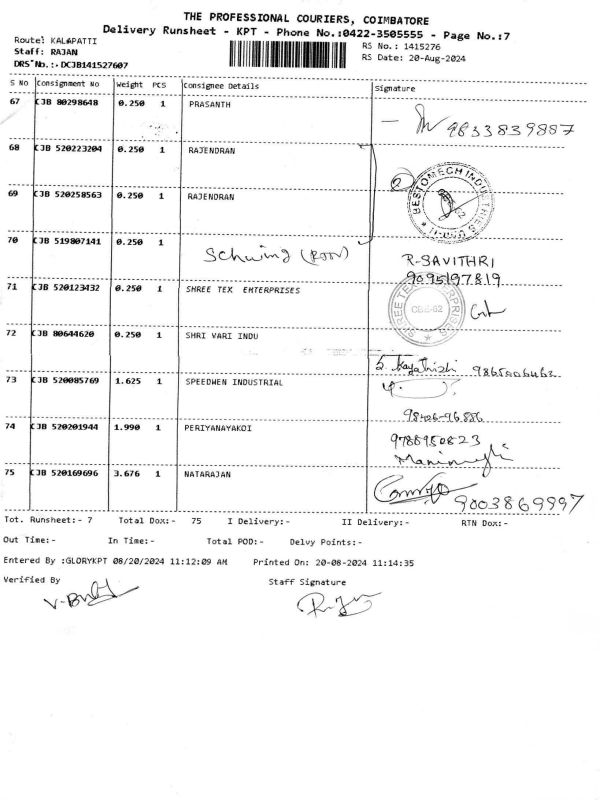 THE PROFESSIONAL COURIERS, COIMBATORE
Delivery Runsheet - KPT - Phone No.:0422-3505555 - Page No.:7
Route: KALAPATTI
RS No. : 1415276
Staff: RAJAN
RS Date: 20-Aug-2024
DRS No.: DCJB141527607
S No Consignment No Weight PCS Consignee Details Signature
67 CJB 80298648 0.250 1 PRASANTH
9833839887
68 CJB 520223204 0.250 1 RAJENDRAN
BESTOMECH INDUSTRIES
69 CJB 520258563 0.250 1 RAJENDRAN
70 CJB 519807141 0.250 1 Schwing
R-SAVITHRI
9095197819
71 CJB 520123432 0.250 1 SHREE TEX ENTERPRISES
SHREE TEX ENTERPRISES
CBE-62
72 CJB 80644620 0.250 1 SHRI VARI INDU
73 CJB 520085769 1.625 1 SPEEDWEN INDUSTRIAL
74 CJB 520201944 1.990 1 PERIYANAYAKOI
9788950823
75 CJB 520169696 3.676 1 NATARAJAN
9003869997
Tot. Runsheet:- 7 Total Dox:- 75 I Delivery:- II Delivery:- RTN Dox:-
Out Time:- In Time:- Total POD:- Delvy Points:-
Entered By :GLORYKPT 08/20/2024 11:12:09 AM Printed On: 20-08-2024 11:14:35
Verified By Staff Signature